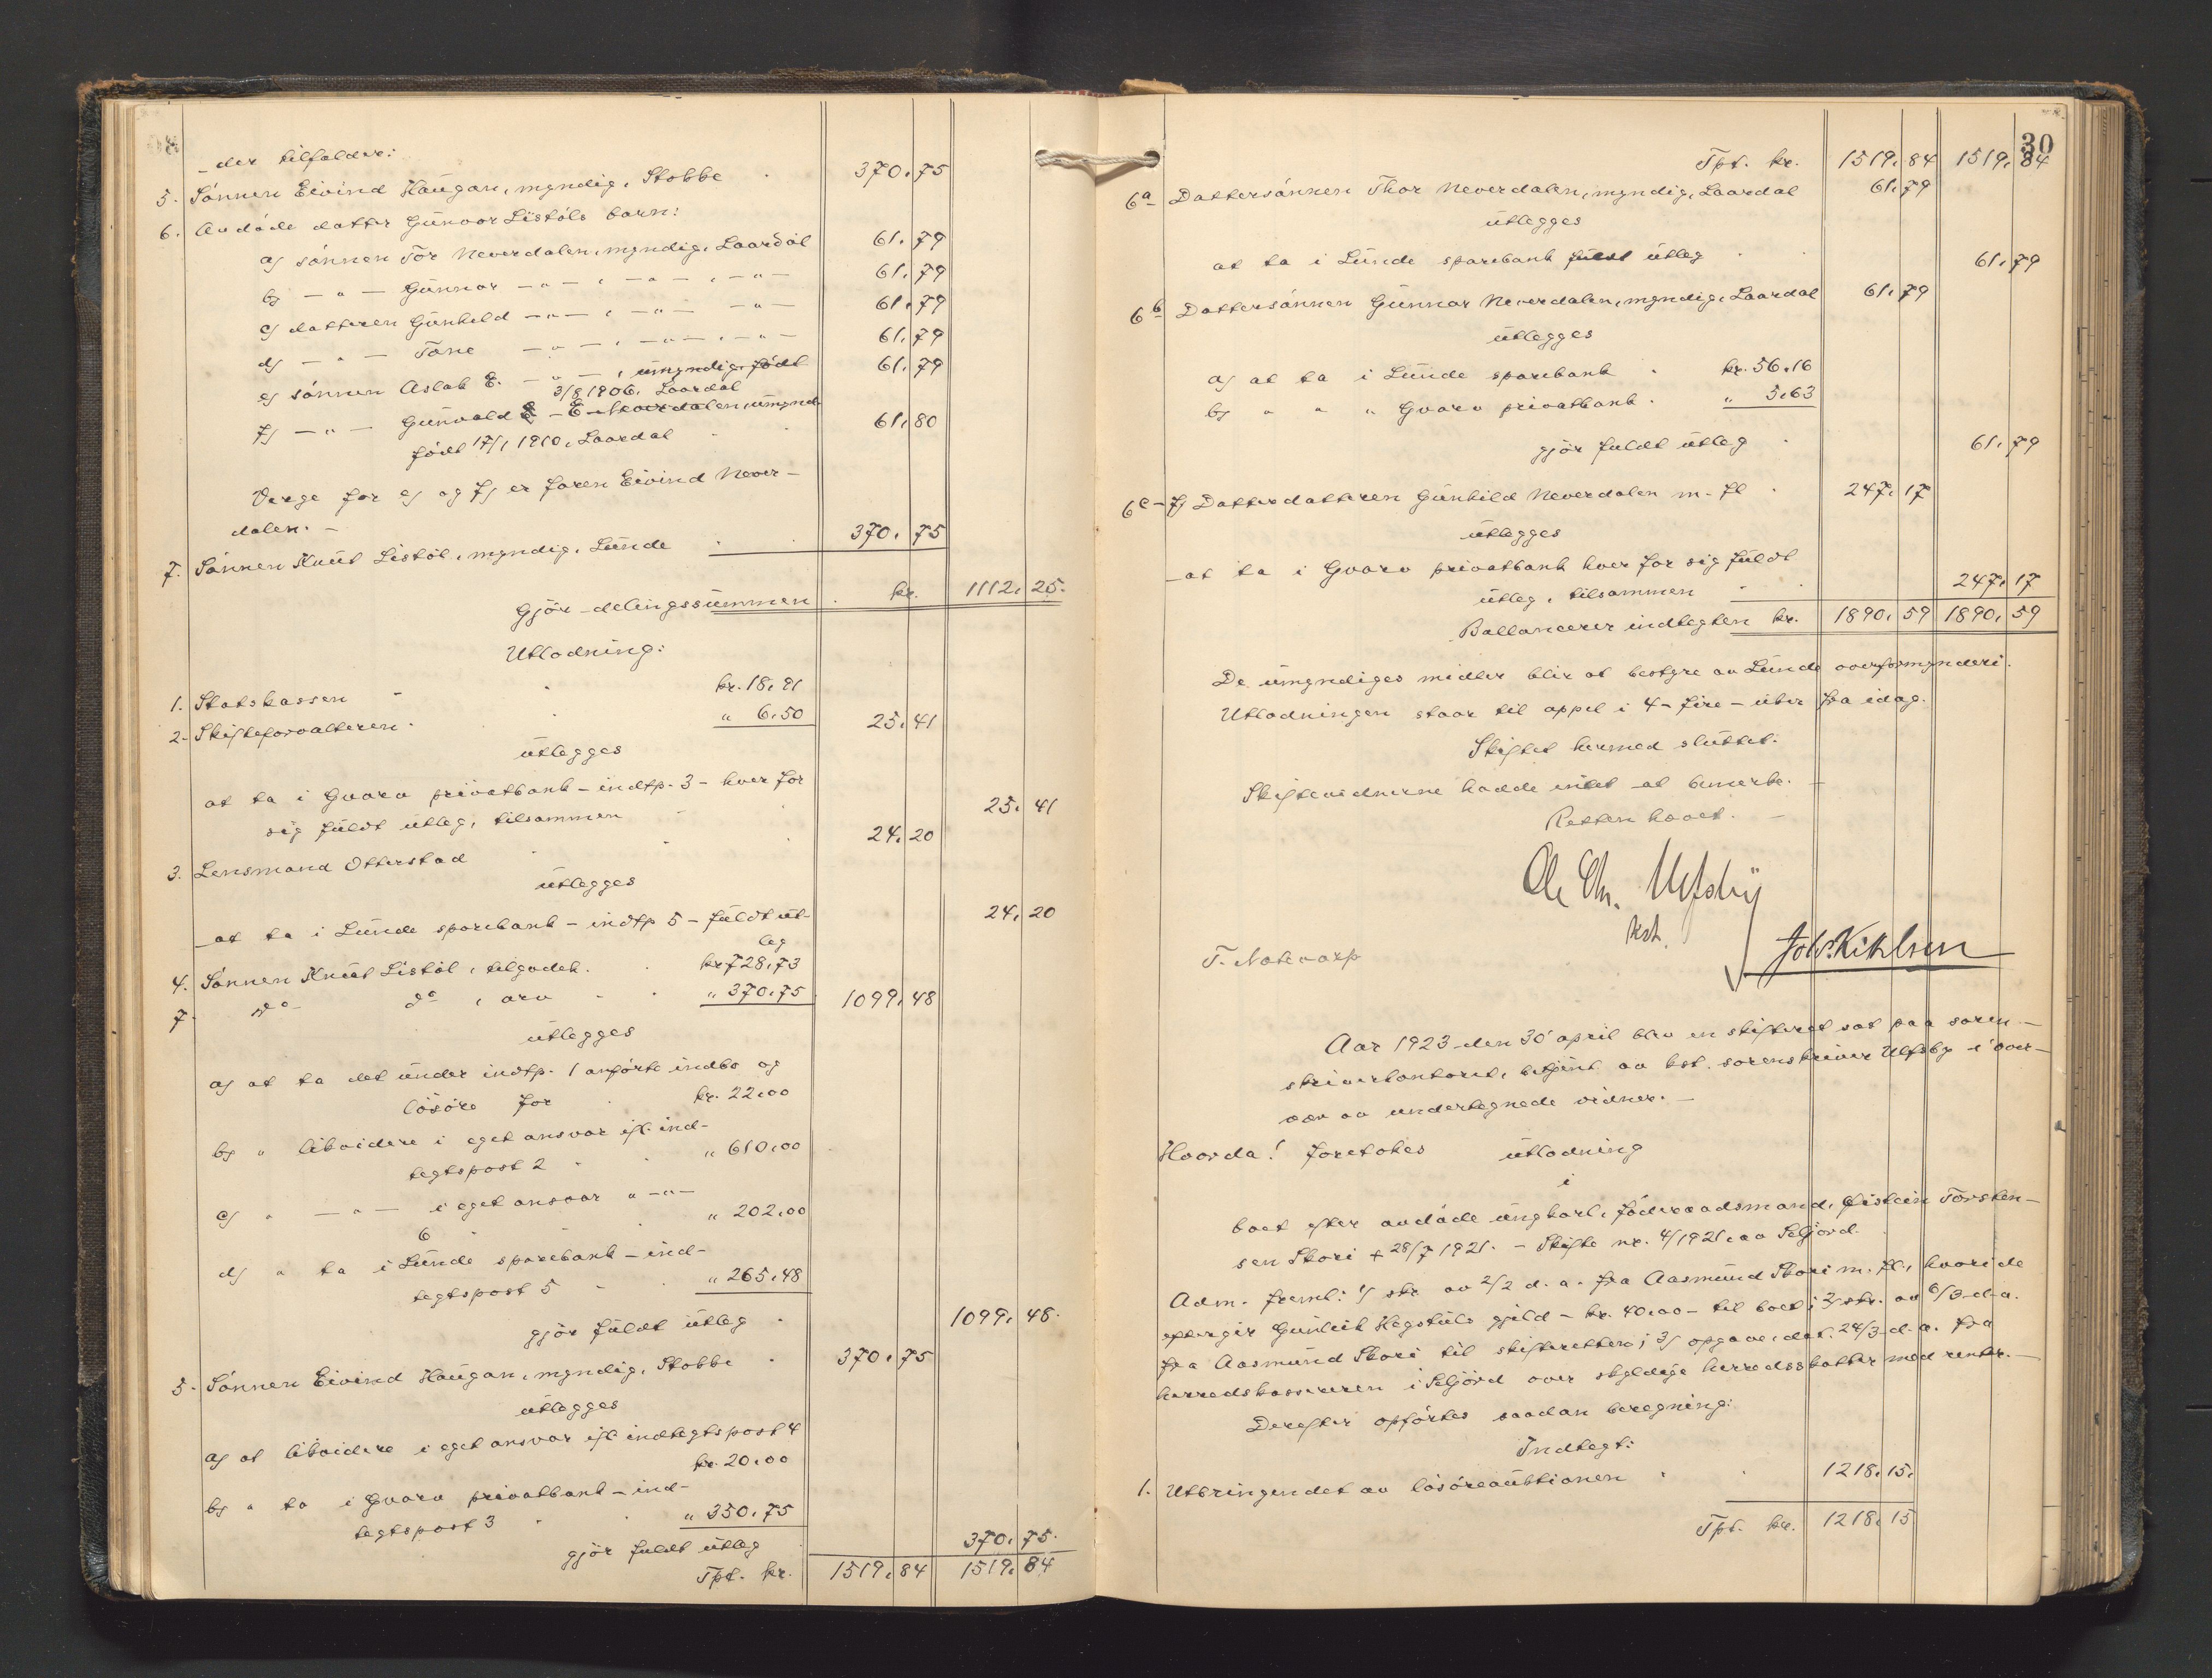 der tilfalder:
5. Sønnen Eivind Haugan, myndig, Stobbe 370.75
6. Avdøde datter Gunvor Listøls barn:
a) sønnen Tor Neverdalen, myndig, Laardal 61.79
b) —"— Gunnar —"—, —"—, —"— 61.79
c) datteren Gunhild —"—, —"— —"— 61.79
d) —"— Tone —"—, —"—, —"— 61.79
e) sønnen Aslak E. —"—, umyndig, født 61.79
3/8 1906, Laardal
f) —"— Gunvald E. Neverdalen, umynd.
født 17/1 1910, Laardal 61.80
Verge for e) og f) er faren Eivind Never-
dalen. —
7. Sønnen Knut Listøl, myndig, Lunde 370.75
Gjør delingssummen kr. 1112.25.
Utlodning:
1. Statskassen kr. 18.91
2. Skifteforvalteren " 6.50 25.41
utlegges
at ta i Gvarv privatbank – indtp. 3 – hver for
sig fuldt utleg, tilsammen 25.41
3. Lensmand Otterstad 24.20
utlegges
at ta i Lunde sparebank – indtp 5 – fuldt ut-
leg 24.20
4. Sønnen Knut Listøl, tilgodeh. kr 728.73
7. do do, arv " 370.75 1099.48
utlegges
a) at ta det under indtp. 1 anførte indbo og
løsøre for kr. 22.00
b) " likvidere i eget ansvar ifl. ind-
tegtspost 2 " 610.00
c) " —"— i eget ansvar " —"—
6 " 202.00
d) " ta i Lunde sparebank – ind-
tegtspost 5 " 265.48
gjør fuldt utleg 1099.48.
5. Sønnen Eivind Haugan, myndig, Stobbe 370.75
utlegges
a) at likvidere i eget ansvar ifl indtegtspost 4
kr. 20.00
b) " ta i Gvarv privatbank – ind-
tegtspost 3 " 350.75
gjør fuldt utleg 370.75.
Tpt. kr. 1519.84 1519.84
30
Tpt. kr. 1519.84 1519.84
6a Dattersønnen Thor Neverdalen, myndig, Laardal 61.79
utlegges
at ta i Lunde sparebank fuldt utleg 61.79
6b Dattersønnen Gunnar Neverdalen, myndig, Laardal 61.79
utlegges
a) at ta i Lunde sparebank kr. 56.16
b) " " " Gvarv privatbank " 5.63
gjør fuldt utleg 61.79
6c–f) Datterdatteren Gunhild Neverdalen m. fl 247.17
utlegges
at ta i Gvarv privatbank hver for sig fuldt
utleg, tilsammen 247.17
Ballancerer indtegten kr. 1890.59 1890.59
De umyndiges midler blir at bestyre av Lunde overformynderi.
Utlodningen staar til appel i 4 – fire – uker fra idag.
Skiftet hermed sluttet.
Skiftevidnerne hadde intet at bemerke. —
Retten hævet. —
Ole Chr. Ulfsby
kst.
T. Notevarp Job. Kihlsen
Aar 1923 den 30 april blev en skifteret sat paa soren-
skriverkontoret, betjent av kst. sorenskriver Ulfsby i over-
vær av undertegnede vidner. —
Hvorda! foretokes utlodning
i
boet efter avdøde ungkarl, føderaadsmand, Øistein Torsten-
sen Skori + 28/7 1921. – Skifte nr. 4/1921 av Seljord.
Adm. freml: 1) skr. av 2/2 d. a. fra Aasmund Skori m. fl., hvori de
eftergir Gunleik Hegstuls gjeld – kr. 40.00 – til boet; 2) skr. av 6/3 d. a.
fra Aasmund Skori til skifteretten; 3) opgave, dat. 24/3 d. a. fra
herredskassereren i Seljord over skyldige herredsskatter med renter. —
Derefter opførtes saadan beregning:
Indtegt:
1. Utbringendet av løsøreauktionen 1218.15.
Tpt. kr. 1218.15